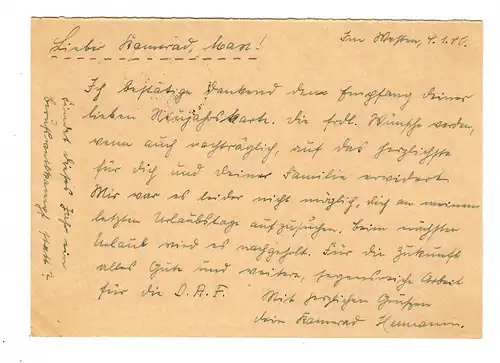 Im Westen, 4.1.40.
Lieber Kamerad, Max!
Ich bestätige dankend dem Empfang deiner
lieben Neujahrskarte. Die frdl. Wünsche werden,
wenn auch nachträglich, auf das herzlichste
für dich und deiner Familie erwidert.
Mir war es leider nicht möglich, dich an meinem
letzten Urlaubstage aufzusuchen. Beim nächsten
Urlaub wird es nachgeholt. Für die Zukunft
alles Gute und weitere, segensreiche Arbeit
für die D.A.F. Mit herzlichen Grüßen
dein Kamerad Hermann.
Findet dieses Jahr ein
Berufswettkampf statt?